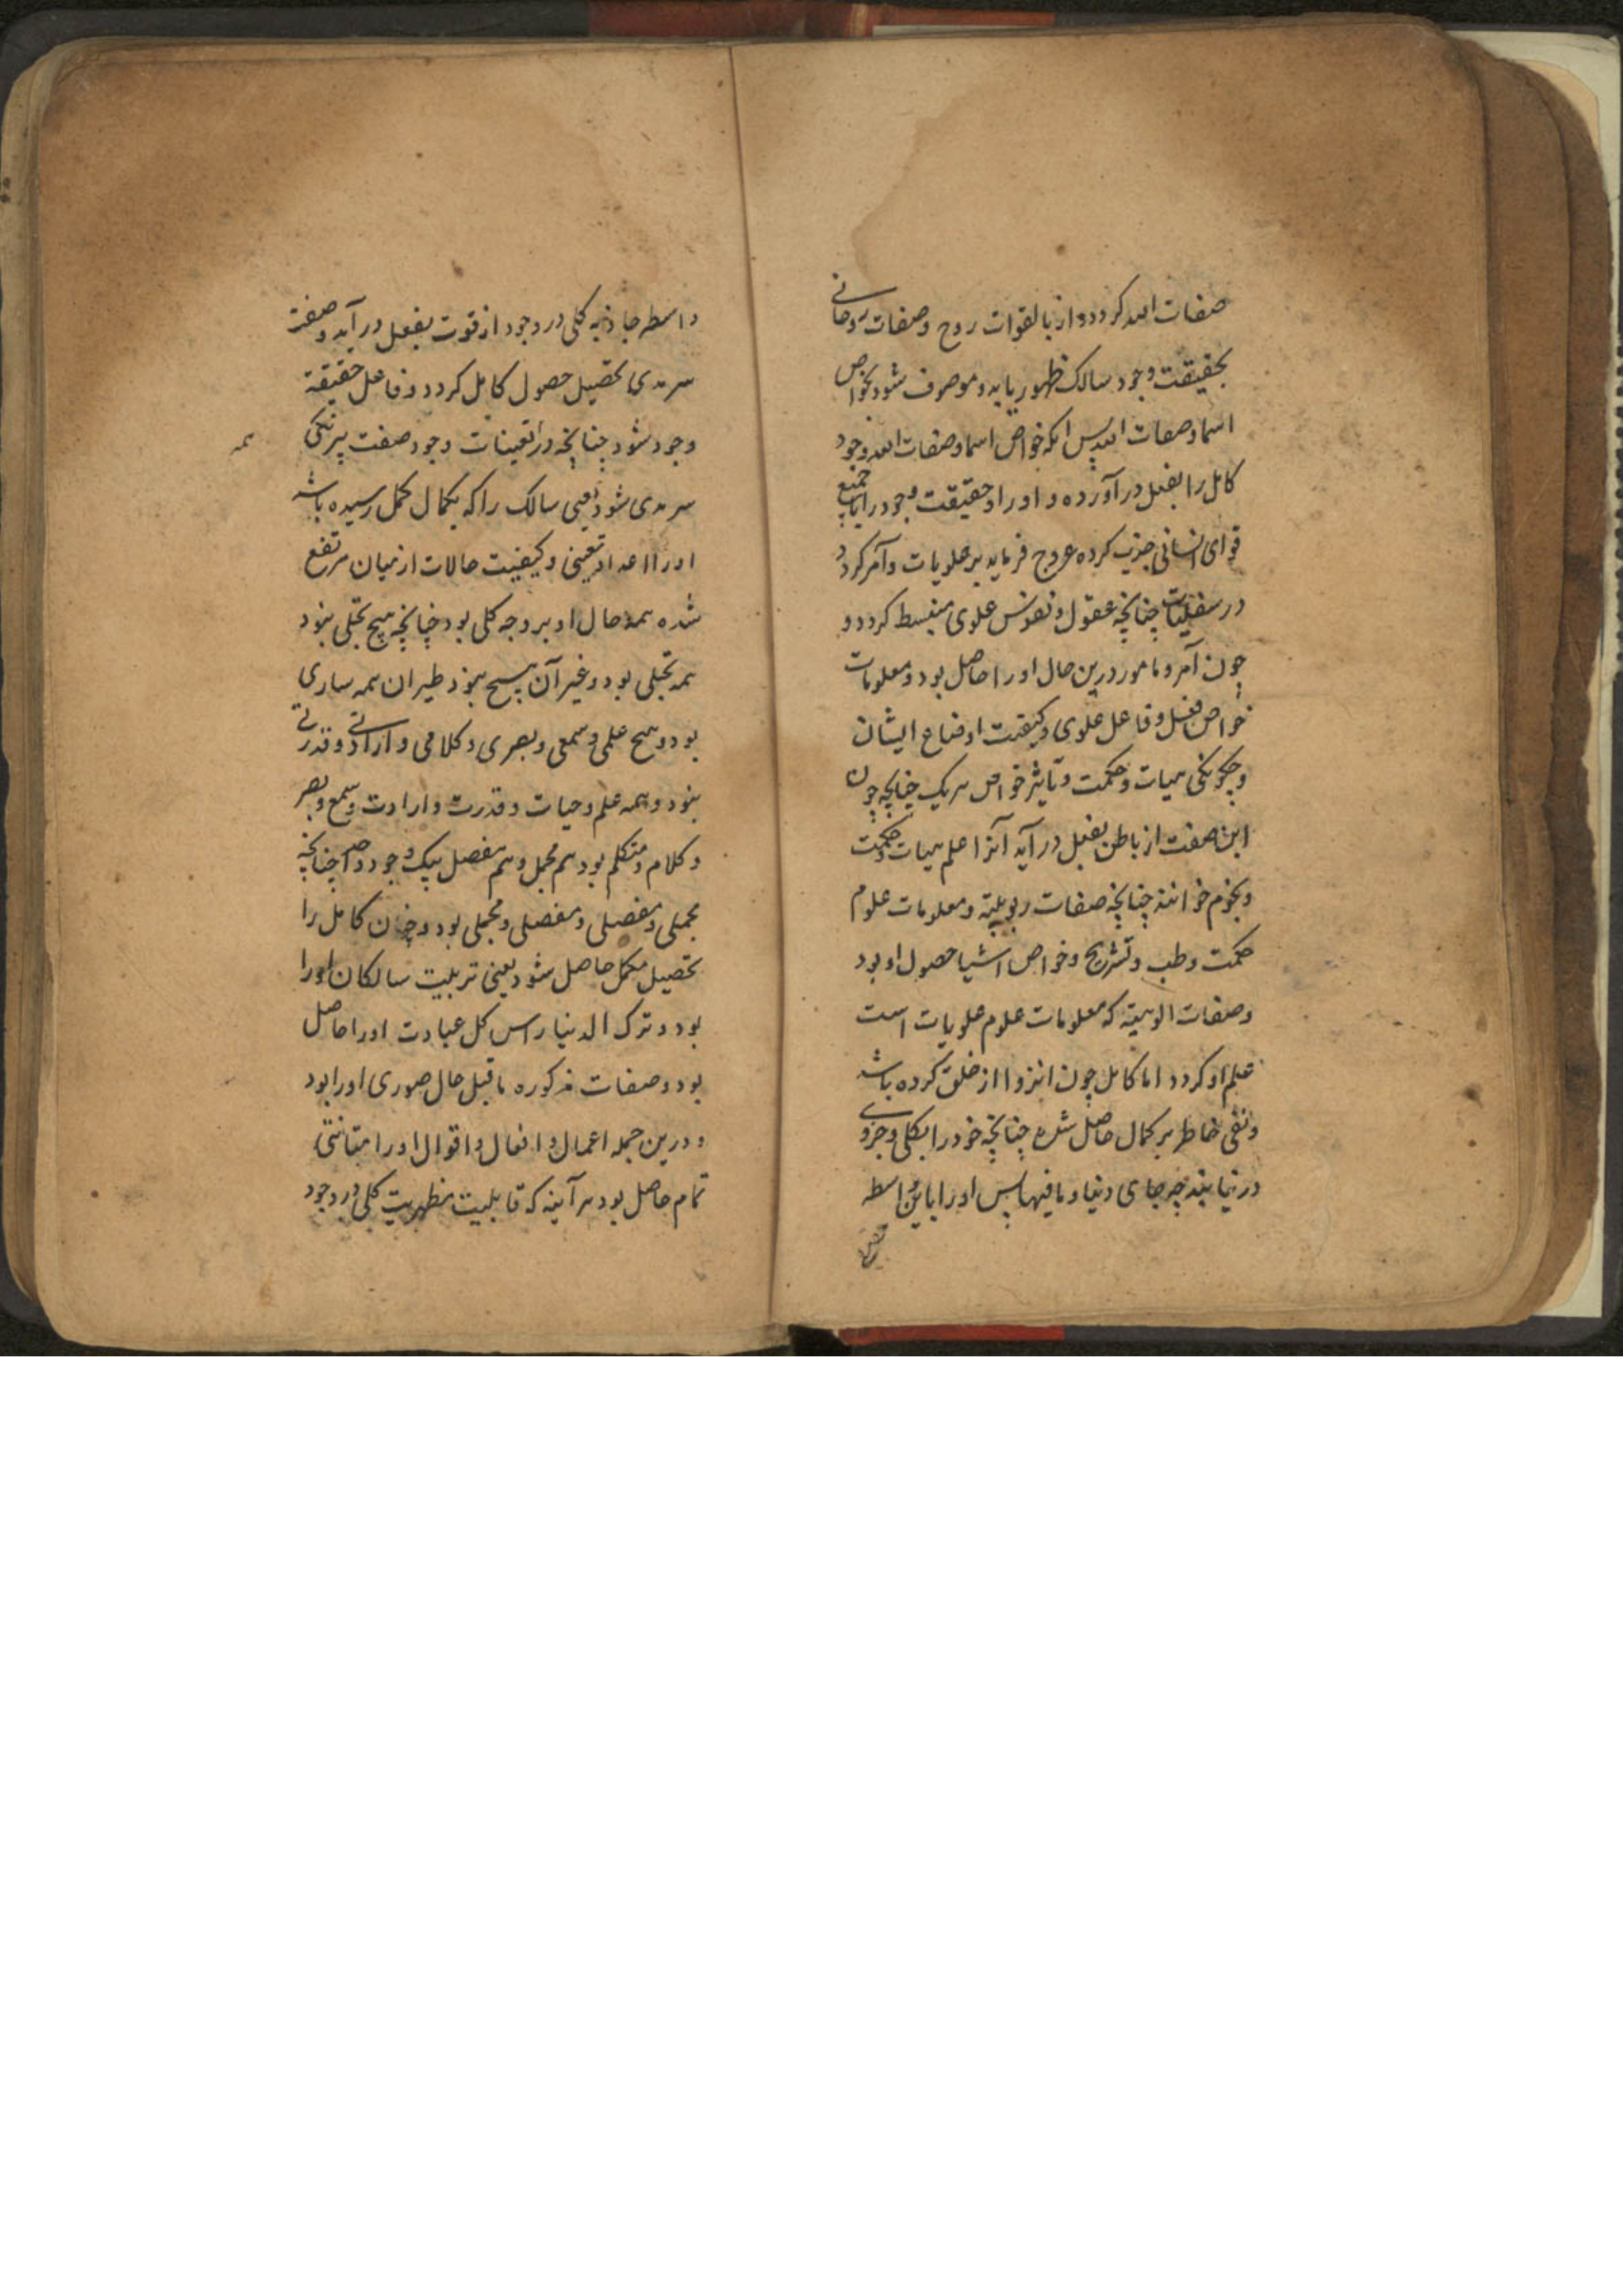 صفات الله کردد و از بالقوات روح و صفات روحانی
بحقیقت وجود سالک ظهور یابد و موصوف شود بخواص
اسما و صفات الله پس انکه خواص اسما و صفات الله وجود
کامل را بفعل در آورده و او را و حقیقت وجود را جمیع
قوای انسانی جذب کرده عروج فرماید بر علویات و آمر کردد
در سفلیات چنانچه عقول و نفوس علوی منبسط کردد و
چون آمر و مامور درین حال او را حاصل بود و معلومات
خواص فعل و فاعل علوی و کیفیت اوضاع ایشان
و چکونکی هیات و حکمت و تاثیر خواص هریک چنانچه چون
این صفت از باطن بفعل در آید آنرا علم هیات و حکمت
و نجوم خوانند چنانچه صفات ربوبیته و معلومات علوم
حکمت و طب و تشریح و خواص اشیا حصول او بود
و صفات الوهیته که معلومات علوم علویات است
علم او کردد اما کامل چون انزوا از خلق کرده باشد
و نفی خاطر بر کمال حاصل شده چنانچه خود را بکلی و جزوی
در نیابند چه جای دنیا و ما فیها پس او را باین واسطه
واسطه جاذبه کلی در وجود از قوت بفعل در آید و صفت
سرمدی تحصیل حصول کامل کردد و فاعل حقیقة
وجود شود چنانچه در تعینات وجود صفت بیرنکی
سرمدی شود یعنی سالک را که بکمال کمل رسیده باشد
او را اعداد تعینی و کیفیت حالات از میان مرتفع
شده همه حال او بر وجه کلی بود چنانچه هیچ تجلی نبود
همه تجلی بود و غیر آن هیچ نبود طیران همه ساری
بود و هیچ علمی و سمعی و بصری و کلامی و ارادتی و قدرتی
نبود و همه علم و حیات و قدرت و ارادت و سمع و بصر
و کلام و متکلم بود هم مجمل و هم مفصل بیک وجود واحد چنانچه
مجملی و مفصلی و مفصلی و مجملی بود و چون کامل را
تحصیل مکمل حاصل شود یعنی تربیت سالکان او را
بود و ترک الدنیا راس کل عبادت او را حاصل
بود و صفات مذکوره ما قبل حال صوری او را بود
و درین جمله اعمال و افعال و اقوال او را متانتی
تمام حاصل بود هر آینه که قابلیت مظهریت کلی در وجود